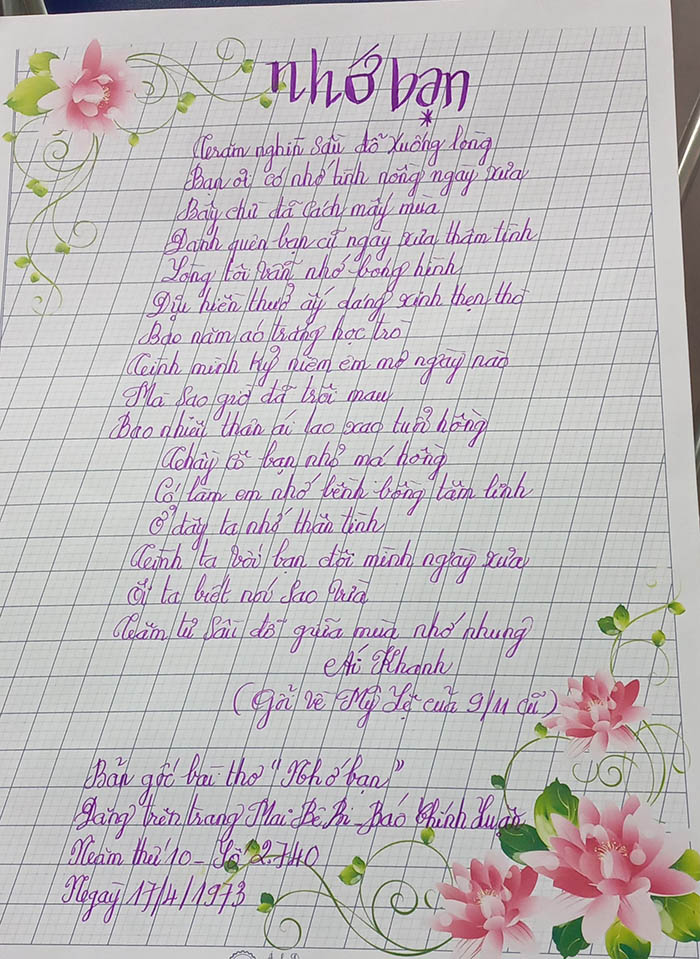 nhớ bạn
Trăm nghìn sầu đổ xuống lòng
Bạn ơi có nhớ tình nồng ngày xưa
Bây chừ đã cách mấy mùa
Đành quên bạn cũ ngày xưa thâm tình
Lòng tôi vẫn nhớ bóng hình
Dịu hiền thuở ấy dáng xinh thẹn thò
Bảo năm áo trắng học trò
Tình mình kỷ niệm êm mơ ngày nào
Mà sao giờ đã trôi mau
Bao nhiêu thân ái lao xao tuổi hồng
Nhảy cô bạn nhỏ má hồng
Có làm em nhớ bềnh bồng tâm linh
Ở đây ta nhớ thân tình
Tình ta với bạn đôi mình ngày xưa
Ơi ta biết nói sao vừa
Trăm tư sầu đổ giữa mùa nhớ nhung
Ái Khanh
(Gởi về Mỹ Lệ của 9/11 cũ)
Bản gốc bài thơ "Nhớ bạn"
Đăng trên trang Mai Bê Bi - Báo Chính Luận
Năm thứ 10 - Số 2.740
Ngày 17/4/1973